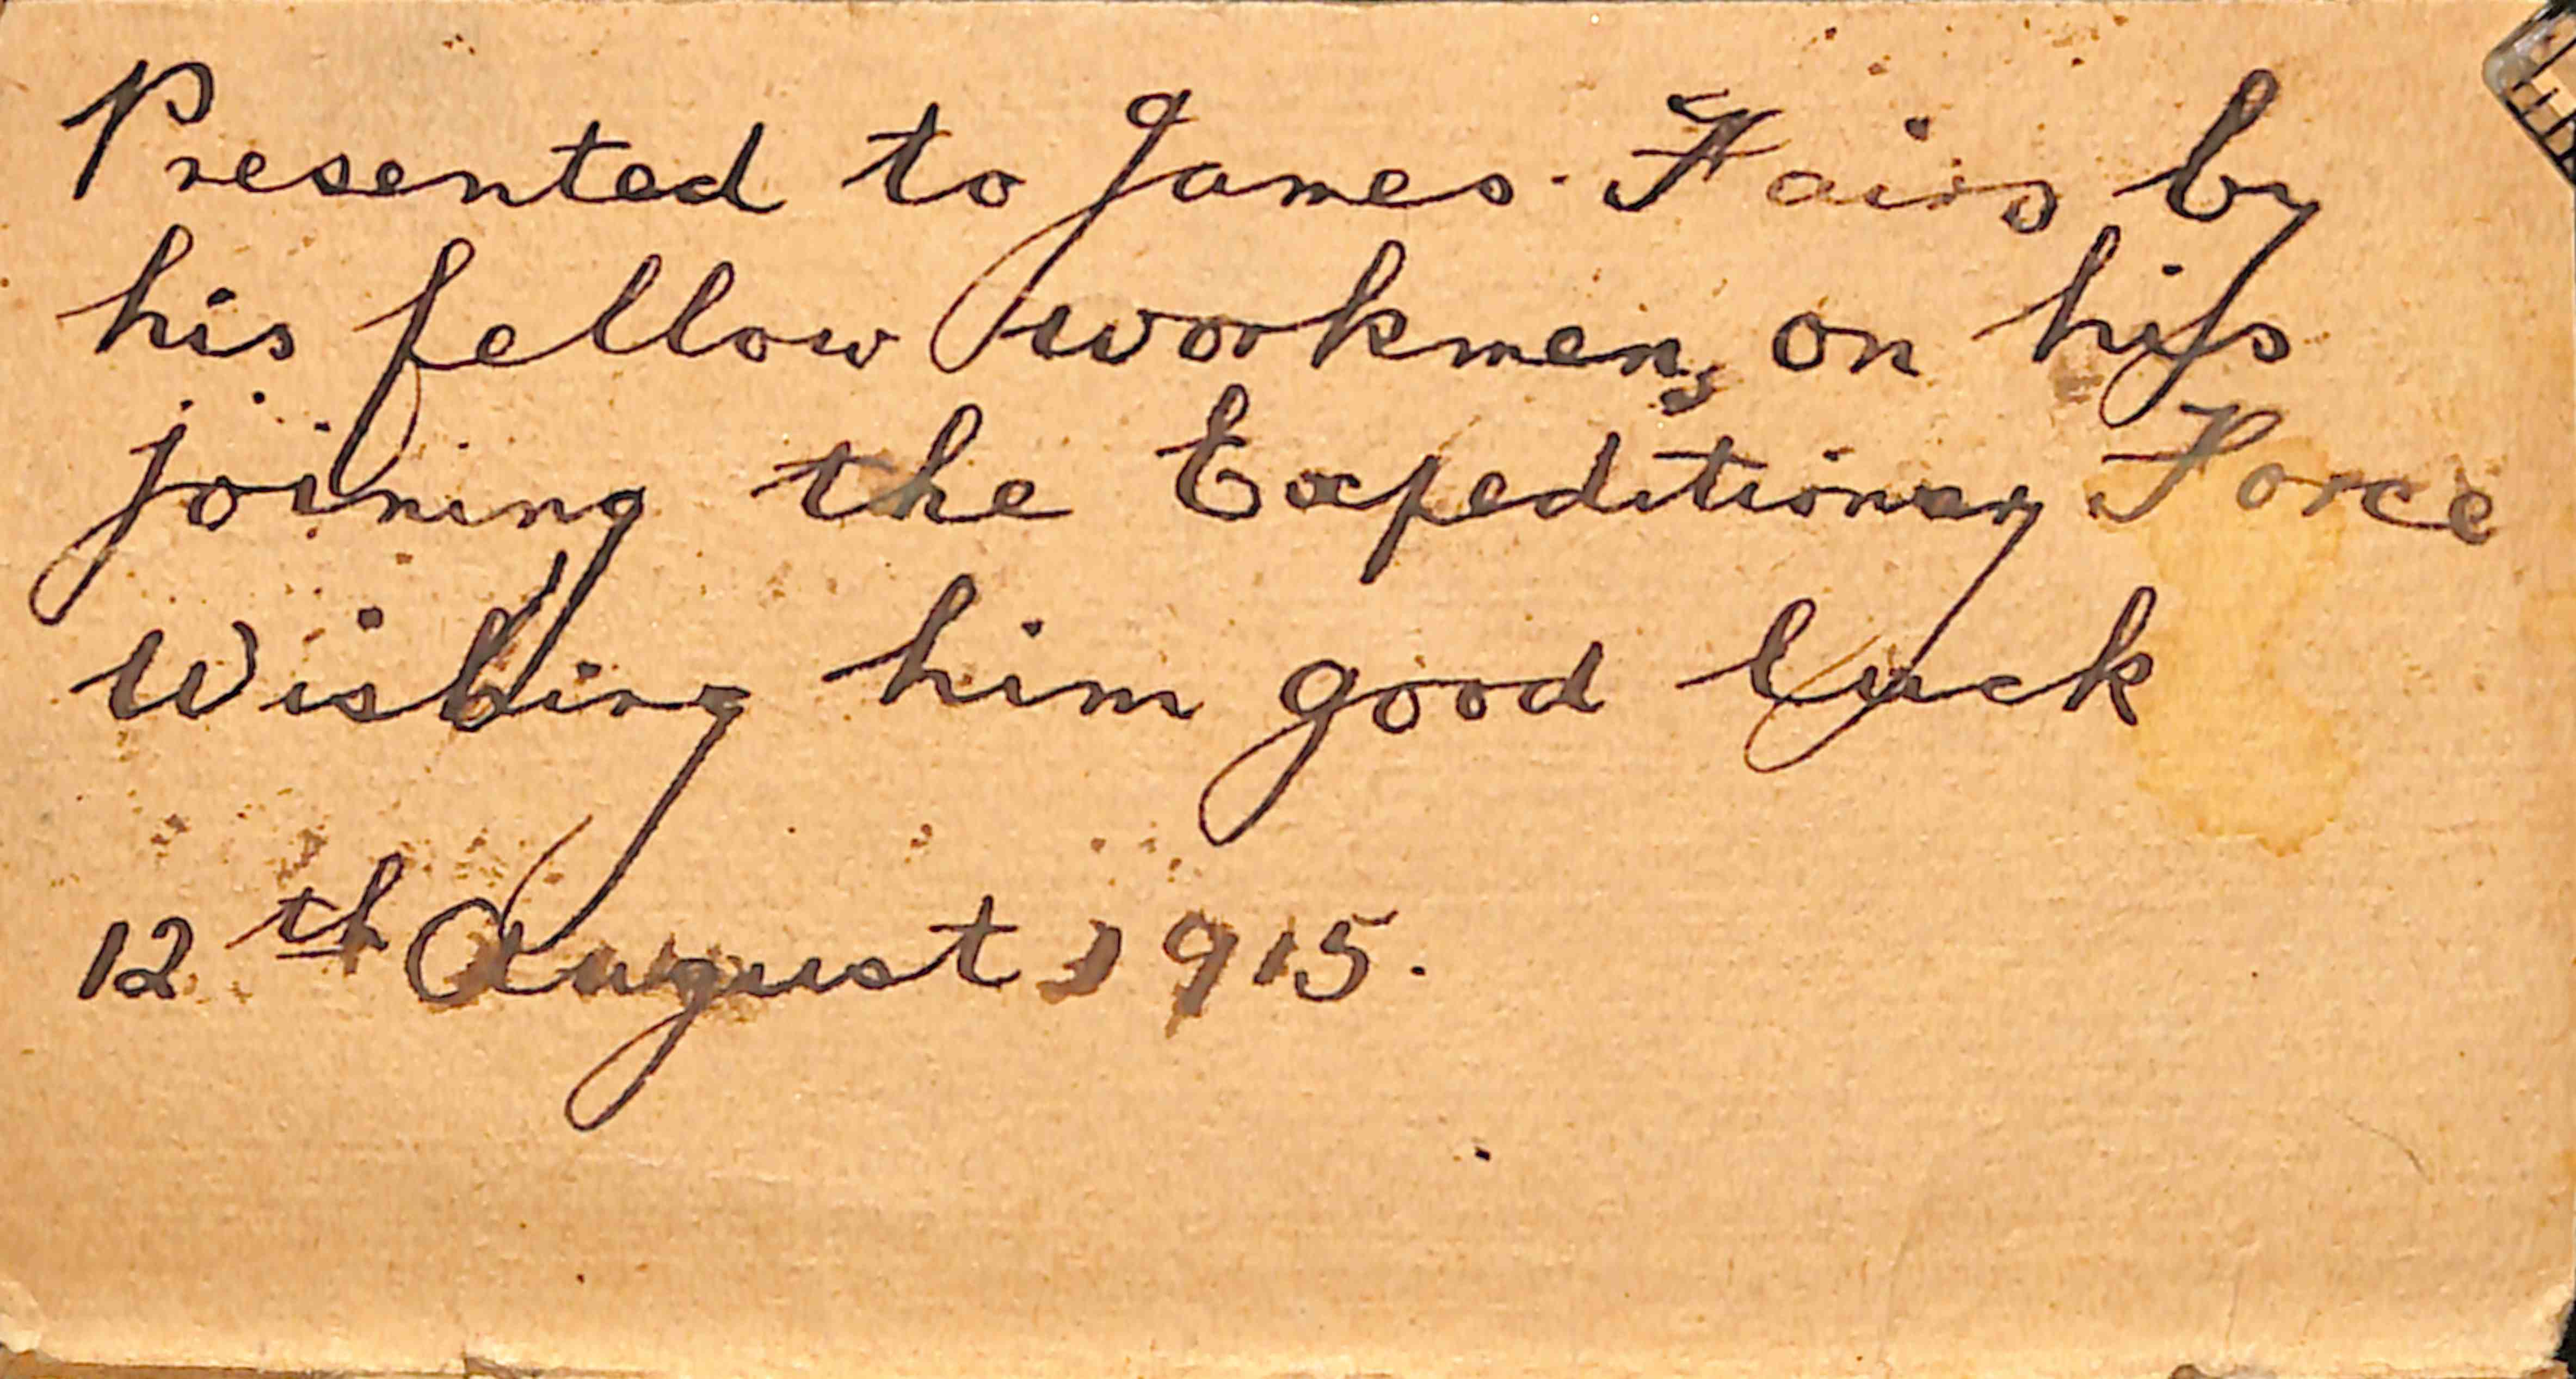 Presented to James Fairs by
his fellow workmen, on his
joining the Expeditionary Force
Wishing him good luck
12th August 1915.